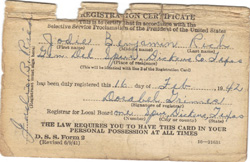 REGISTRATION CERTIFICATE
This is to certify that in accordance with the
Selective Service Proclamation of the President of the United States
Jodie Benjamin Rice
(First name) (Middle name) (Last name)
Gen. Del. Spur, Dickens Co. Texas
(Place of residence)
(This will be identical with line 2 of the Registration Card)
has been duly registered this 16 day of Feb, 1942
Registrar for Local Board One Spur, Dickens, Texas
THE LAW REQUIRES YOU TO HAVE THIS CARD IN YOUR
PERSONAL POSSESSION AT ALL TIMES
D. S. S. Form 2
(Revised 6/9/41)